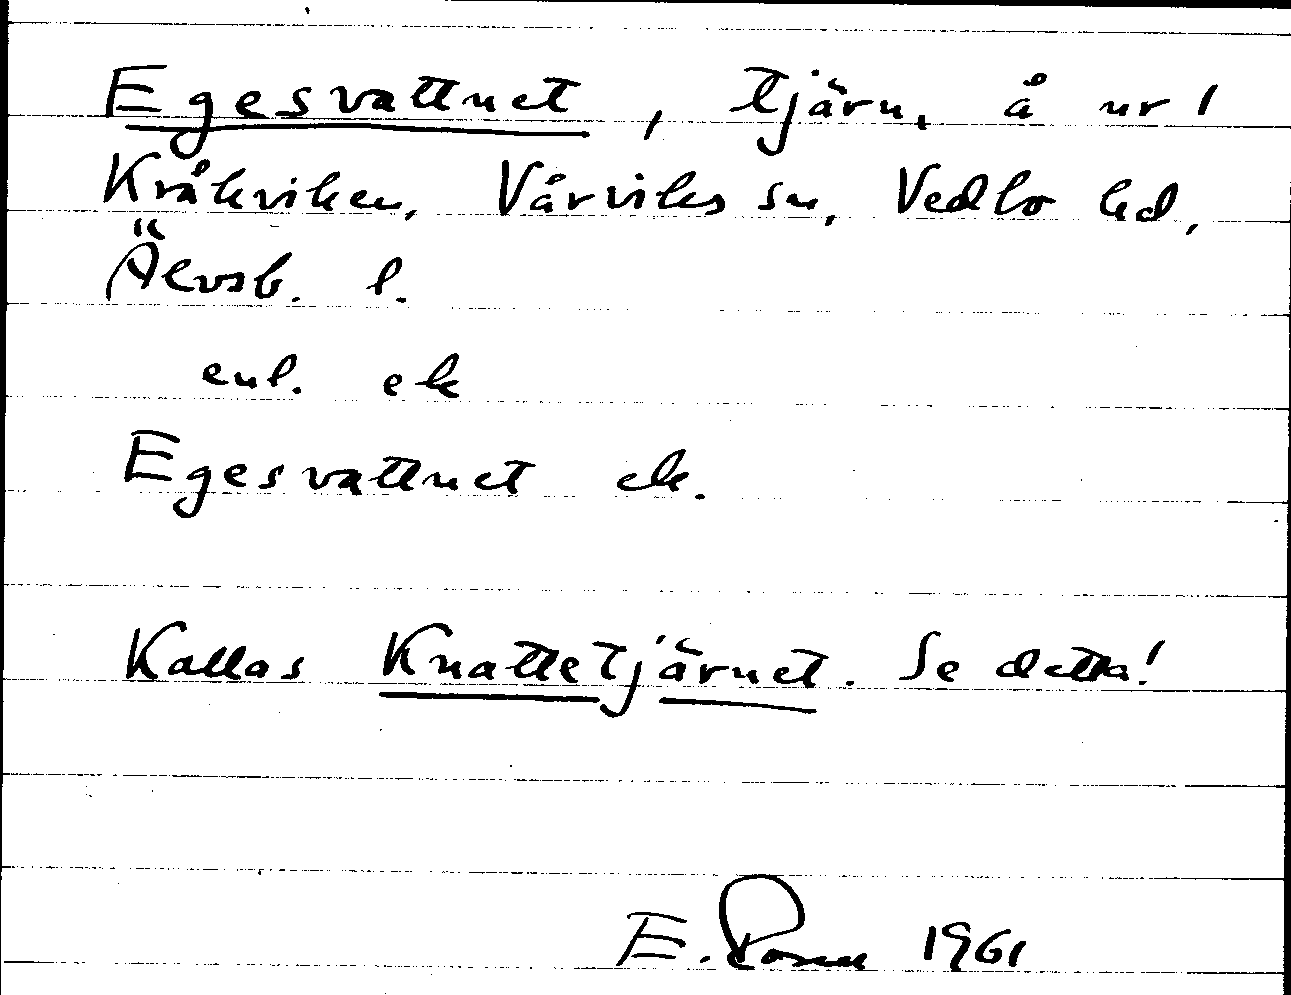 Egesvattnet, tjärn, å nr 1
Kråkviken, Vårviks sn, Vedbo hd,
Älvsb. l.
enl. ek
Egesvattnet ek.
Kallas Knattetjärnet. Se detta!
E. Rosen 1961